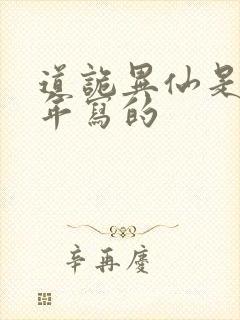 道詭異仙是
年寫的
辛再慶